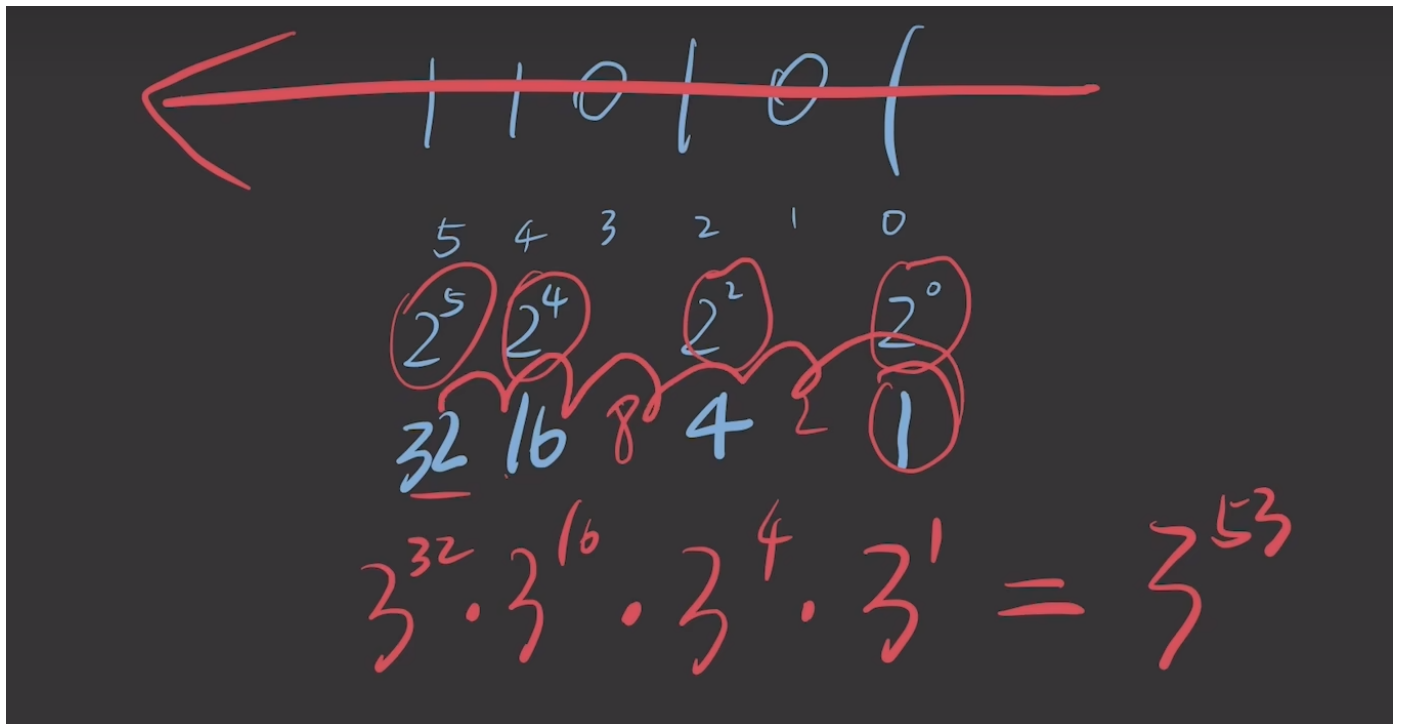 1 1 0 1 0 1
5 4 3 2 1 0
2⁵ 2⁴ 2² 2⁰
32 16 8 4 2 1
3³² · 3¹⁶ · 3⁴ · 3¹ = 3⁵³